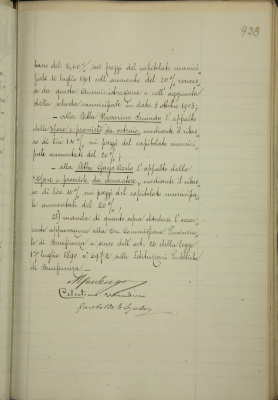 923
basso del 6,60% sui prezzi del capitolato munici-
pale 10 luglio 1901 coll'aumento del 20% conces-
so da questa Amministrazione e coll'aggiunta
della scheda municipale in data 3 Ottobre 1903;
– alla Ditta l'appalto
delle opere e provviste da vetraio, mediante il ribas-
so di lire 14% sui prezzi del capitolato munici-
pale aumentati del 20%;
– alla Ditta Carlo l'appalto delle
opere e provviste da, mediante il ribas-
so di lire 10% sui prezzi del capitolato municipale
aumentati del 20%.
2) manda di quanto sopra chiedersi l'occor-
rente approvazione alla On. Commissione Provinciale
di Beneficenza a senso dell'art. 36 della legge
17 luglio 1890 n° 6972 sulle Istituzioni Pubbliche
di Beneficenza. –
Celestino